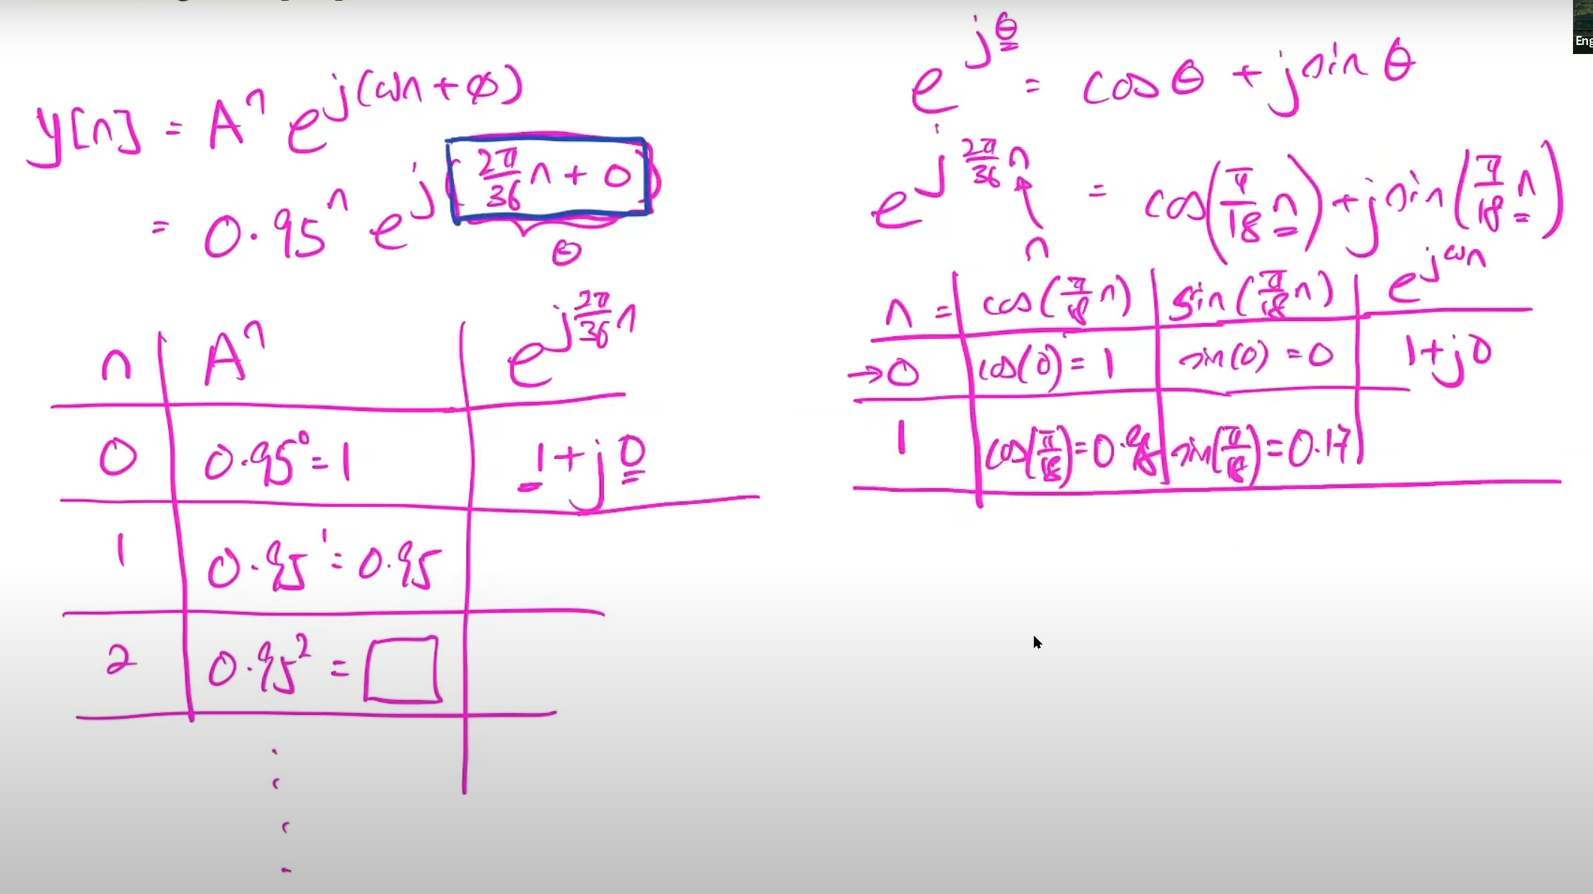 y[n] = Aⁿ e^{j(ωn + φ)}
= 0.95ⁿ e^{j(2π/36 n + 0)}
θ
n | Aⁿ | e^{j 2π/36 n}
0 | 0.95⁰ = 1 | 1 + j0
1 | 0.95¹ = 0.95
2 | 0.95² = □
e^{jθ} = cos θ + j sin θ
e^{j 2π/36 n} = cos(π/18 n) + j sin(π/18 n)
n
n = | cos(π/18 n) | sin(π/18 n) | e^{jωn}
→ 0 | cos(0) = 1 | sin(0) = 0 | 1 + j0
1 | cos(π/18) = 0.98 | sin(π/18) = 0.17
Eng